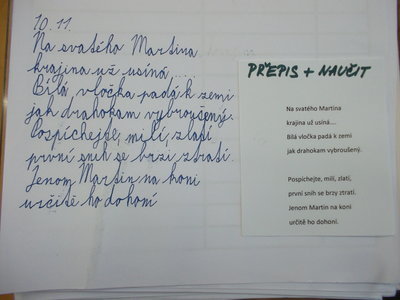 10.11.
Na svatého Martina
krajina už usíná....
Bílá vločka padá k zemi
jak drahokam vybroušený.
Pospíchejte, milí, zlatí
první sníh se brzi ztratí.
Jenom Martin na koni
určitě ho dohoní
PŘEPIS + NAUČIT
Na svatého Martina
krajina už usíná....
Bílá vločka padá k zemi
jak drahokam vybroušený.
Pospíchejte, milí, zlatí,
první sníh se brzy ztratí.
Jenom Martin na koni
určitě ho dohoní.